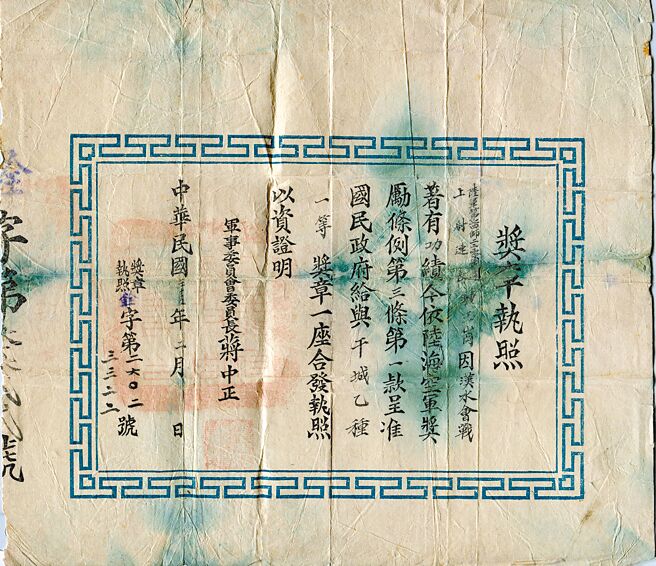 獎章執照
上尉連長
因漢水會戰
著有功績今依陸海空軍獎
勵條例第三條第一款呈准
國民政府給與干城乙種
一等獎章一座合發執照
以資證明
軍事委員會委員長蔣中正
中華民國年二月日
獎章
執照
字第二六〇二
三三二二
號
字第
號